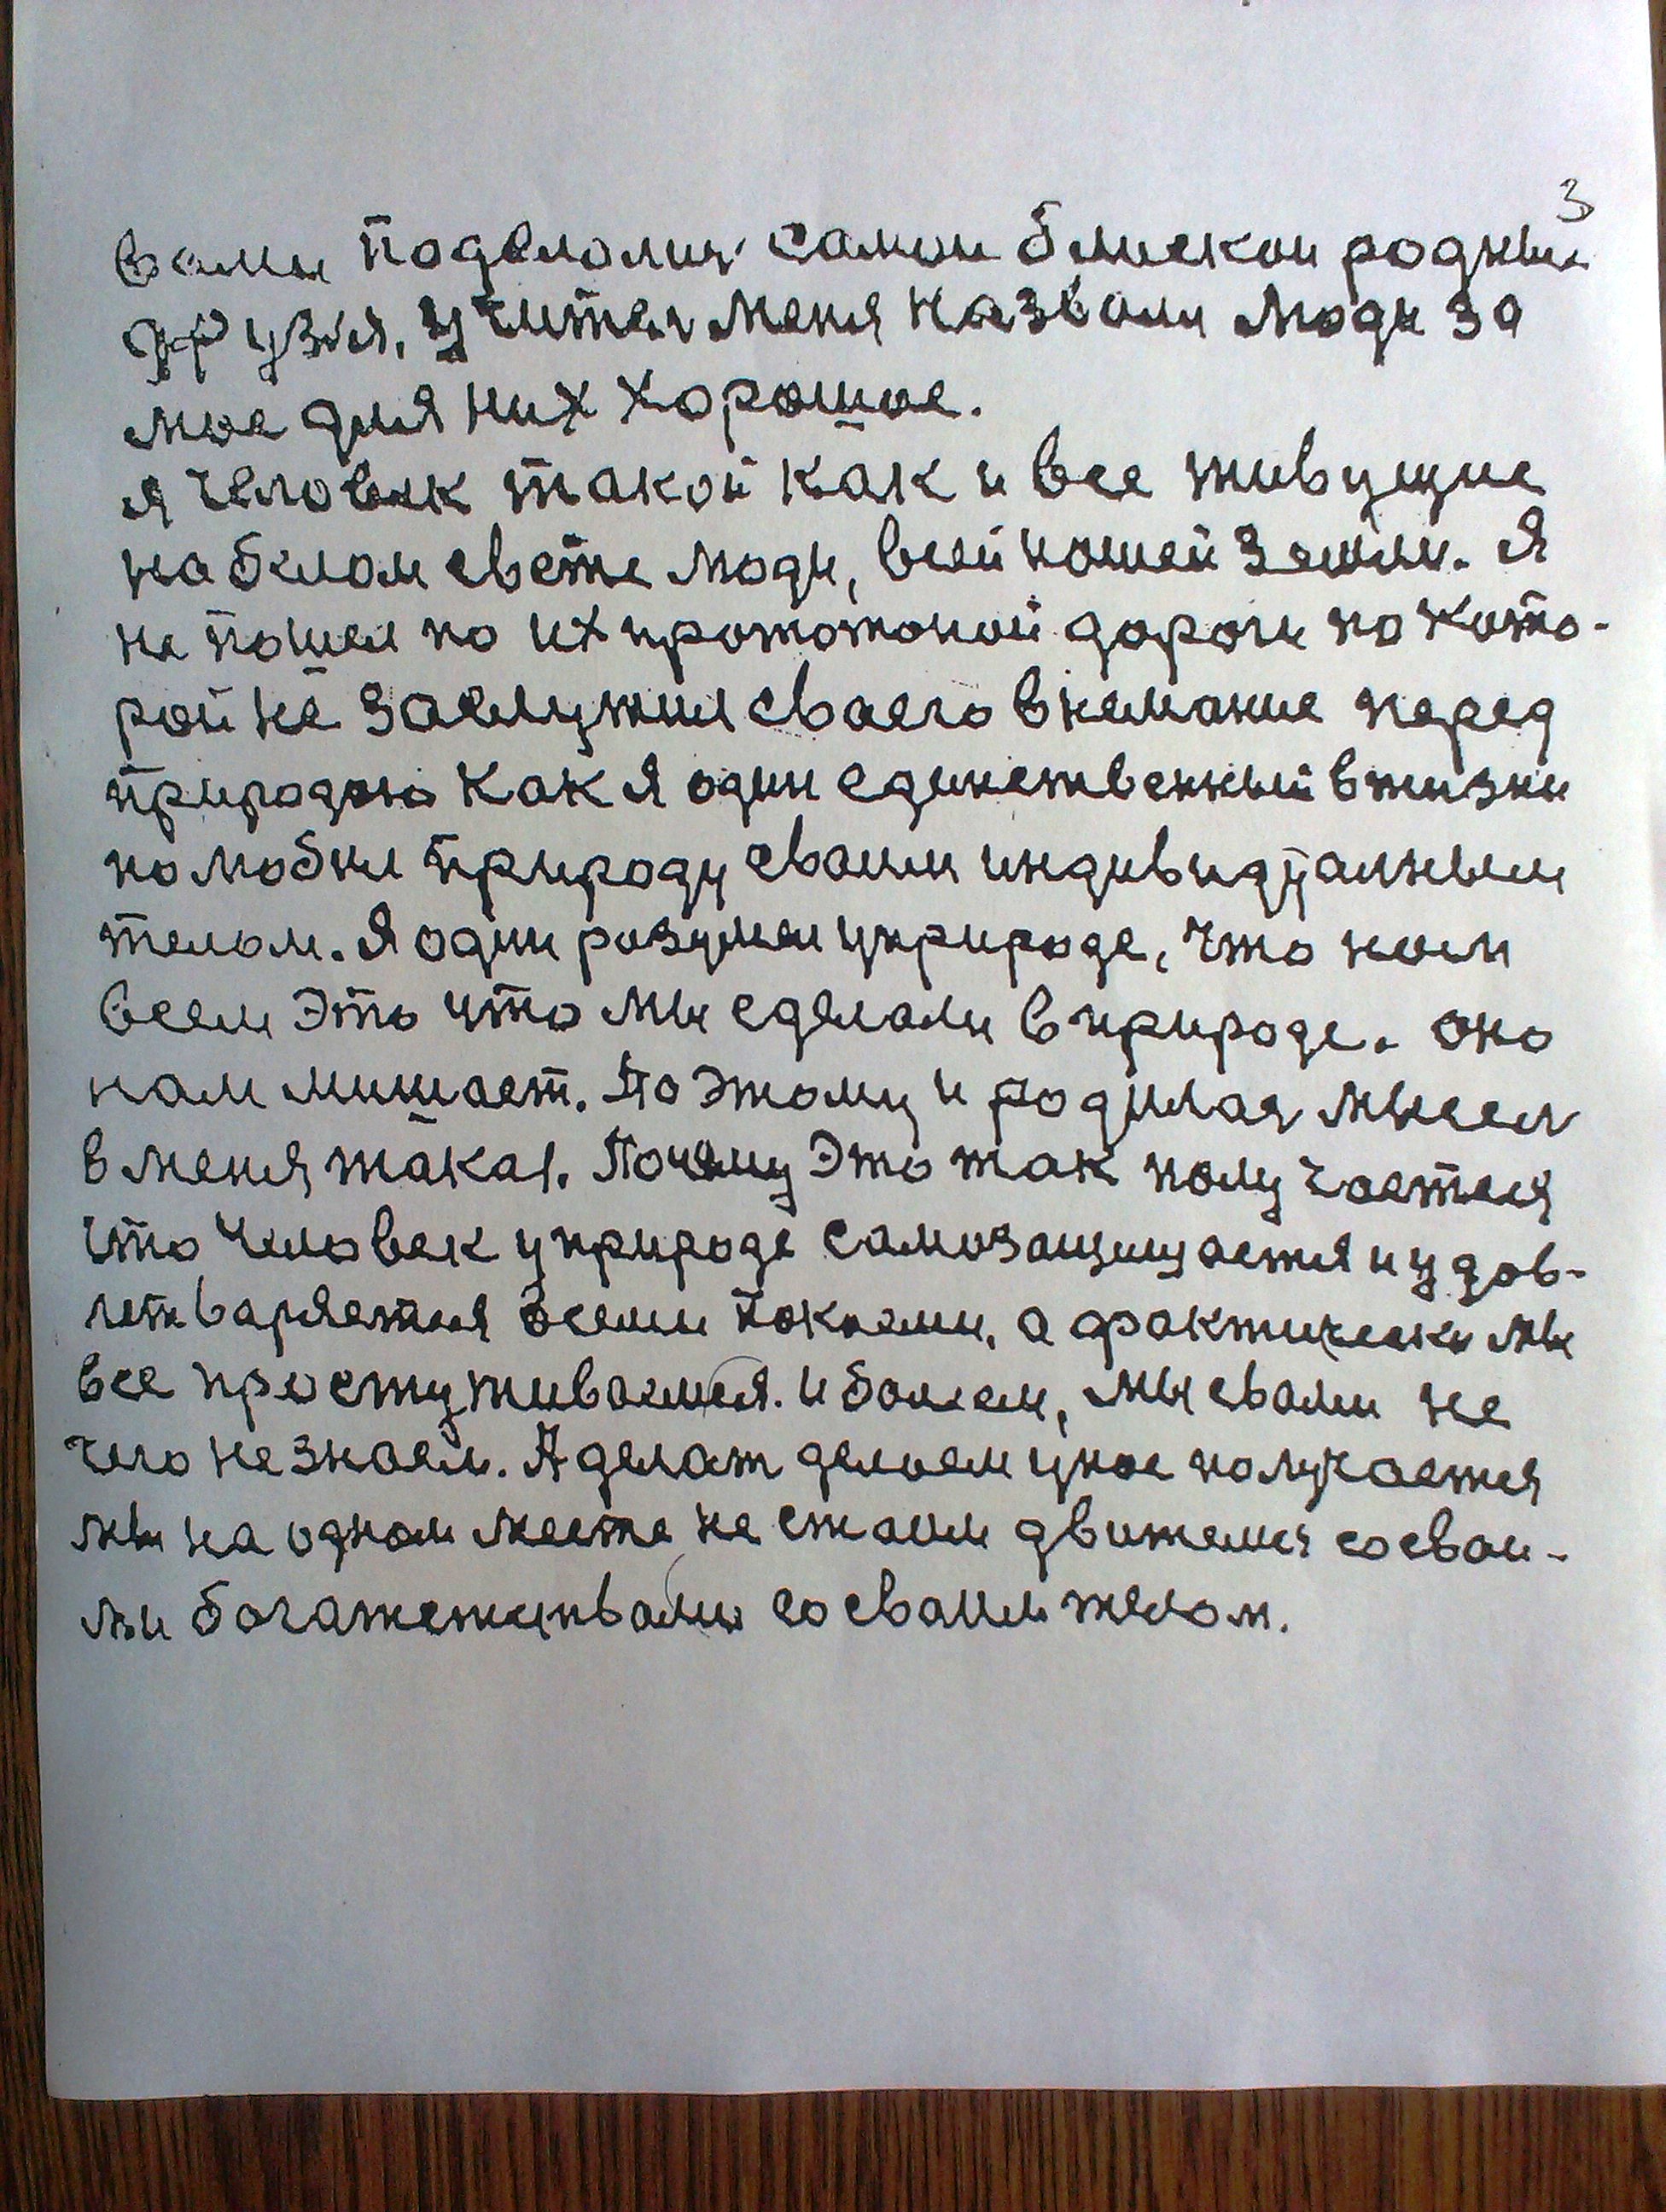 3
вами поделолис самои блиской родныи
друзя, учител меня назвали люди за
мое для них хорошое.
я человек такой как и все живущие
на билом свете люди, всей нашей земли. Я
не пошел по их прототоной дороги по кото-
рой не заслужил своего внемание перед
природою как я один единственный в жизни
полюбил природу своим индивидуалным
телом. Я один розумел уприроде, что нам
всем это что мы сделали в природе. оно
нам мишает. По этому и родилас мысел
в меня такая. Почему это так получается
что человек уприроде самозащищается и удов-
летваряется всеми токоеми, а фактически мы
все простуживаемся. и болеем, мы свали не
чего не знаем. А делат делоем уное получается
мы на одном месте не стоим движемся со свои-
ми богатемствами со своим телом.